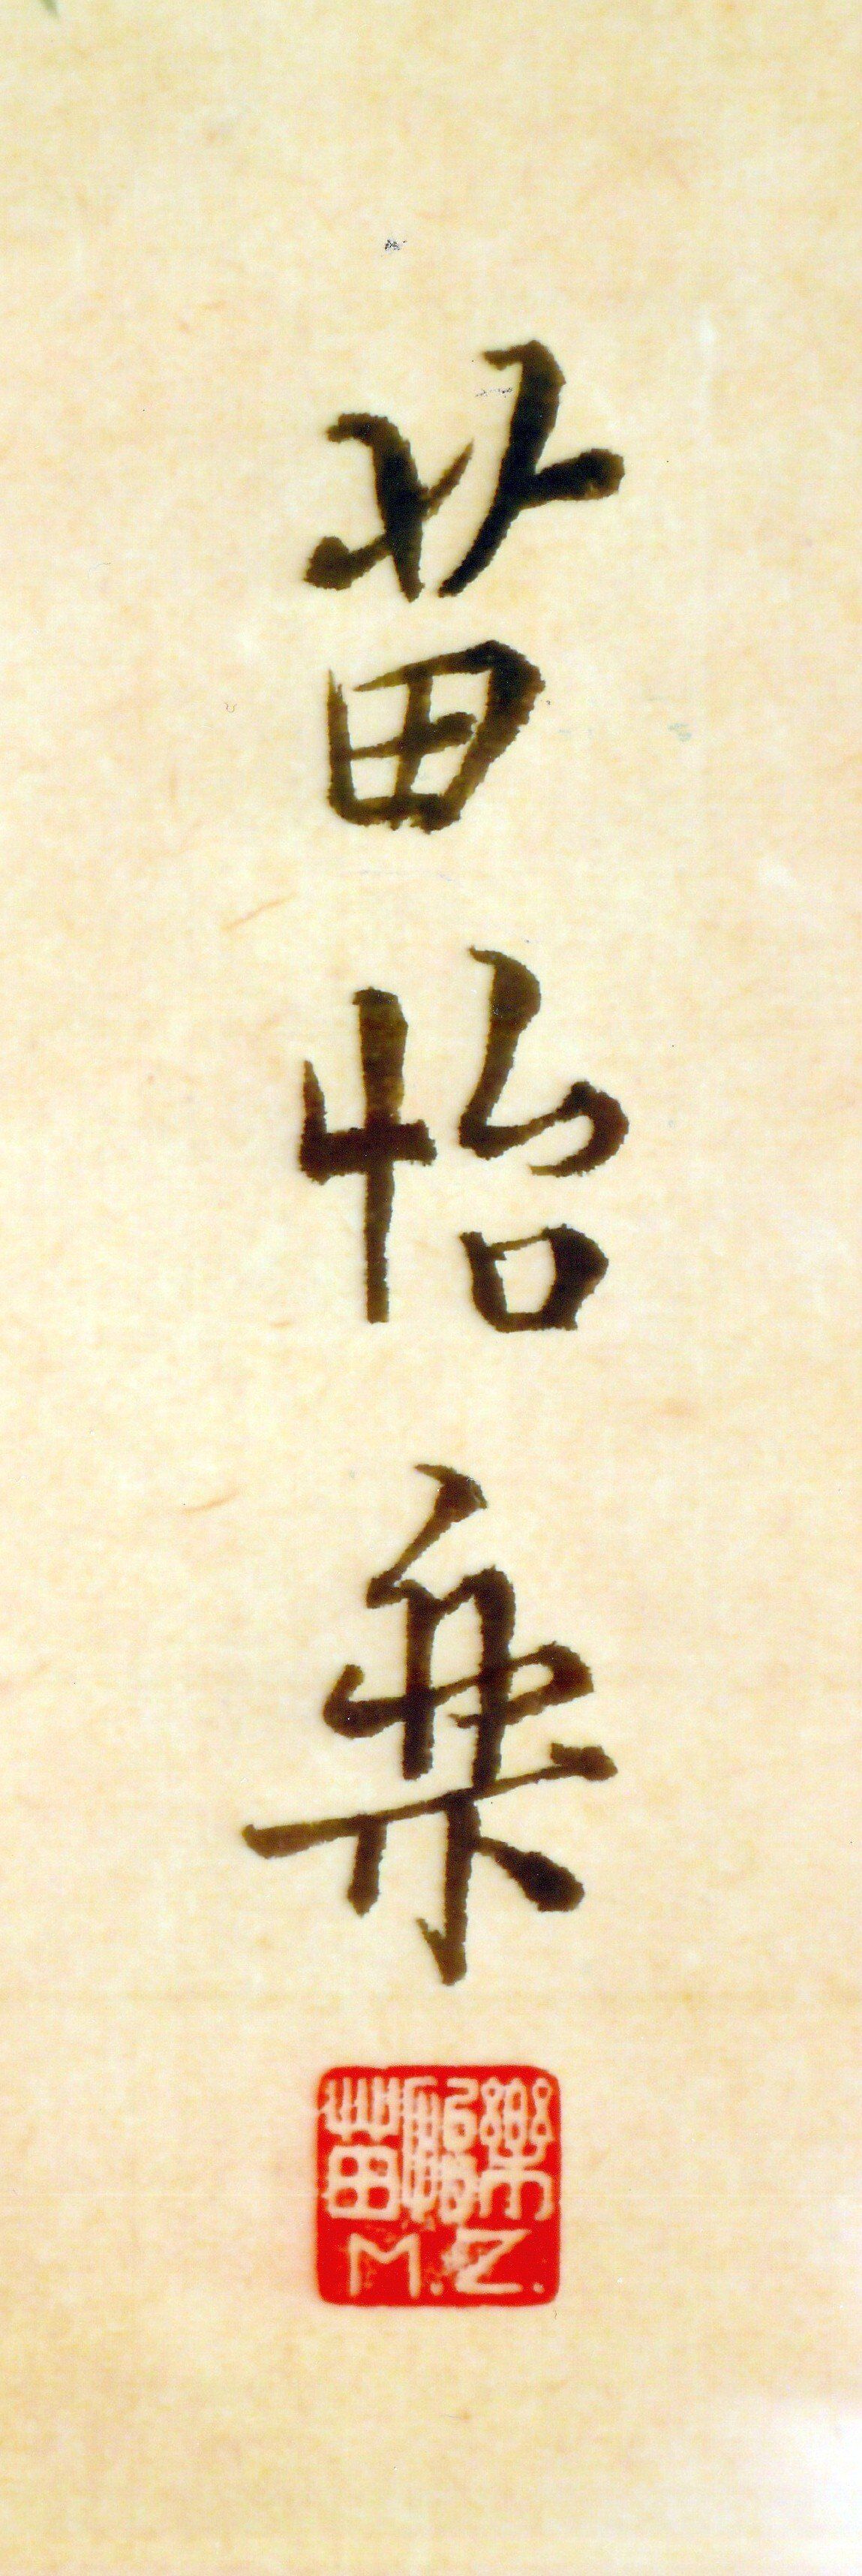 苗怡樂
苗怡樂
M.Z.